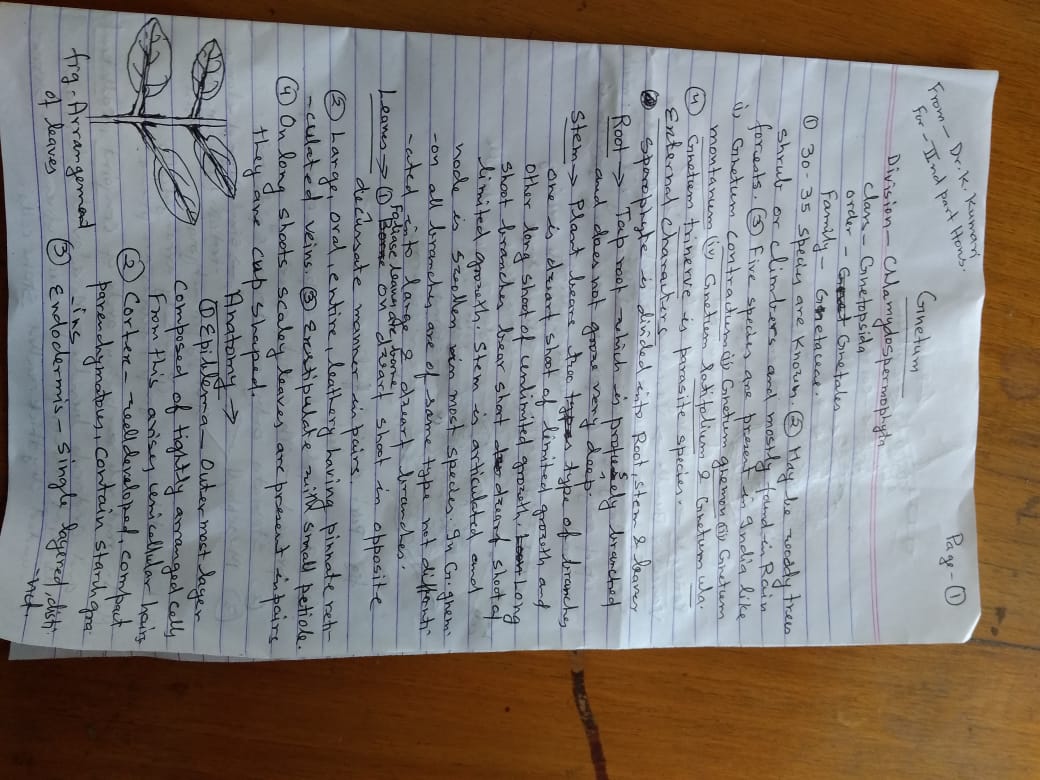 From - Dr. K. Kumari
For - IInd part Hons.
Page - ①
Gnetum
Division - Chlamydospermophyta
Class - Gnetopsida
order - Gnetales
Family - Gnetaceae.
① 30-35 species are known. ② May be woody trees
shrub or climbers and mostly found in Rain
forests. ③ Five species are present in India like
i) Gnetum contractum ii) Gnetum gnemon iii) Gnetum
montanum (iv) Gnetum latifolium & Gnetum ula.
④ Gnetum trinerve is parasite species.
External characters
Sporophyte is divided into Root, stem & leaves
Root → Tap root which is profusely branched
and does not grow very deep.
Stem → Plant bears two type of branches,
one is dwarf shoot of limited growth and
other long shoot of unlimited growth. Long
shoot branches bear short dwarf shoot of
limited growth. Stem is articulated and
node is swollen in most species. In G. gnem-
-on all branches are of same type not differenti-
-ated into large & dwarf branches.
Leaves → ① Foliage leaves are borne on dwarf shoot in opposite
decussate manner in pairs.
② Large, oval, entire, leathery having pinnate reti-
-culated veins. ③ Exstipulate with small petiole.
④ On long shoots scaley leaves are present in pairs
they are cup shaped.
Anatomy →
① Epiderma - Outermost layer
composed of tightly arranged cells
From this arises unicellular hairs
② Cortex - well developed, compact
parenchymatous, contain starch gra-
-ins
③ Endodermis - Single layered, disti-
-nct
fig - Arrangement
of leaves